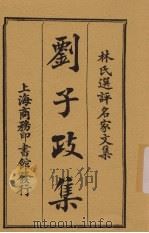 林氏選評名家文集
劉子政集
上海商務印書館發行